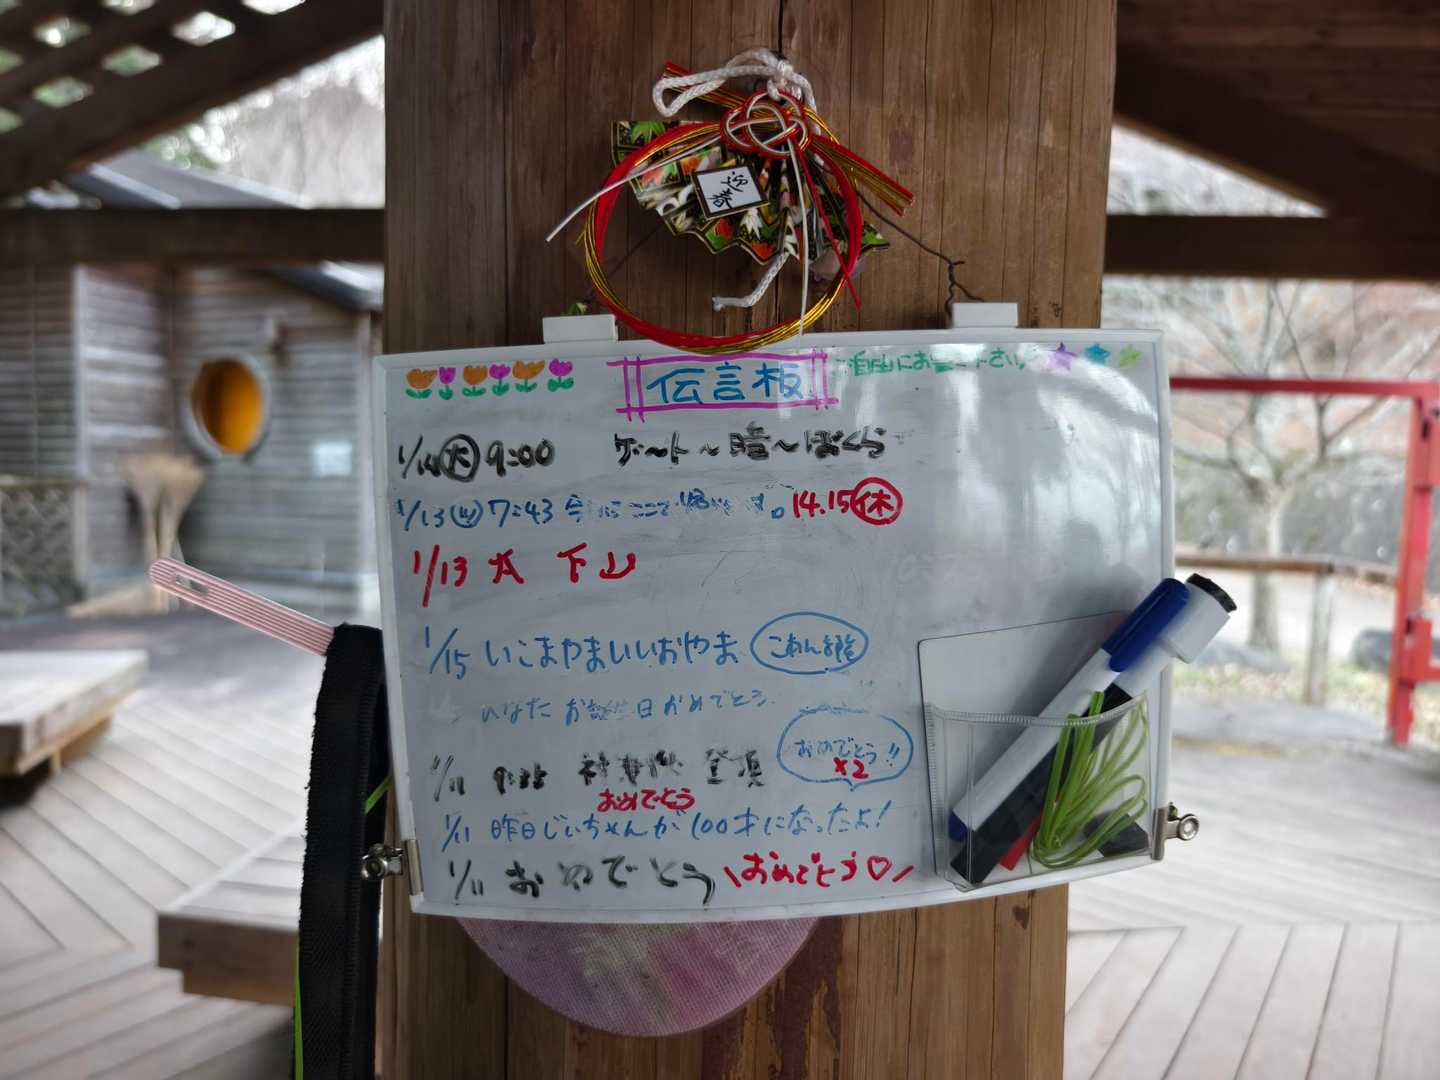 迎春
伝言板
ご自由にお
1/14 木 9:00 ゲート〜暗〜ぼくら
1/13 7:43 今 ここで 14.15 休
1/13 大 下山
1/15 いこまやまいいおやま
あなた お誕生日おめでとう
1/11 登頂 おめでとう!! ×2
おめでとう
1/11 昨日じいちゃんが100才になったよ!
1/11 おめでとう \おめでとう♡/